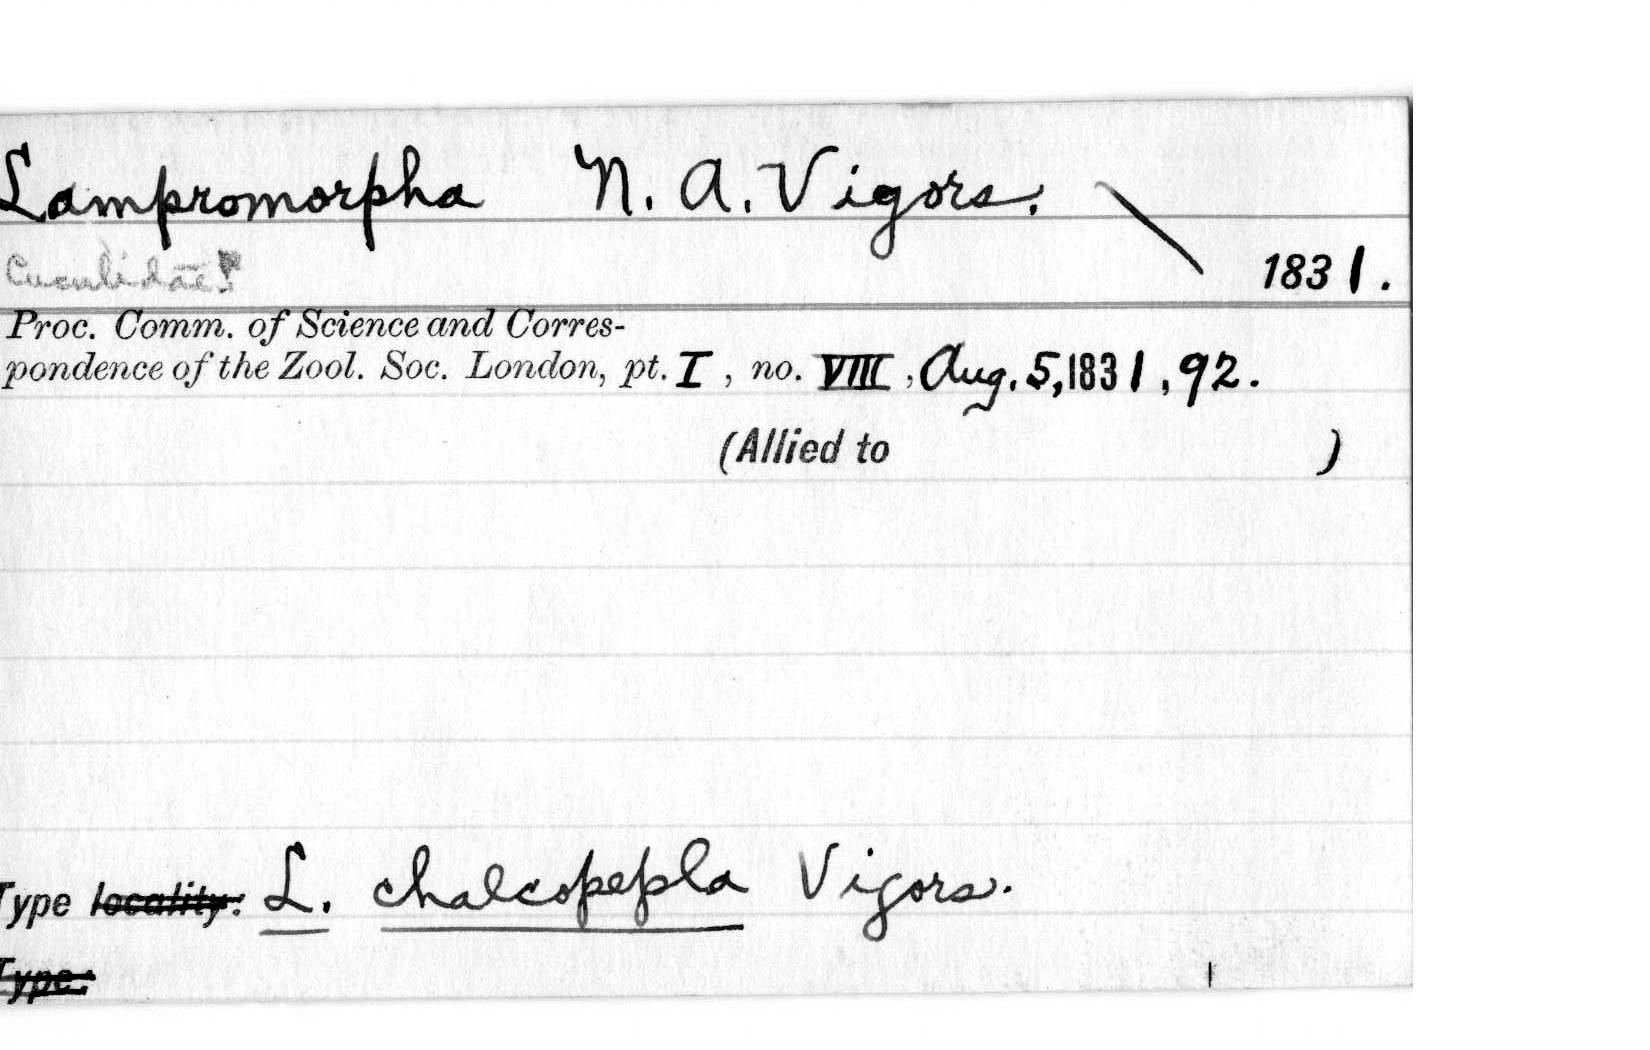 Lampromorpha N. A. Vigors.
Cuculidae?
1831.
Proc. Comm. of Science and Corres-
pondence of the Zool. Soc. London, pt. I, no. VIII, Aug. 5, 1831, 92.
(Allied to )
Type locality: L. chalcopepla Vigors.
Type: